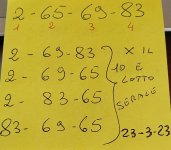 2 - 65 - 69 - 83
1 2 3 4
2 - 69 - 83
2 - 69 - 65
2 - 83 - 65
83 - 69 - 65
X IL
10 E
LOTTO
SERALE
23-3-23